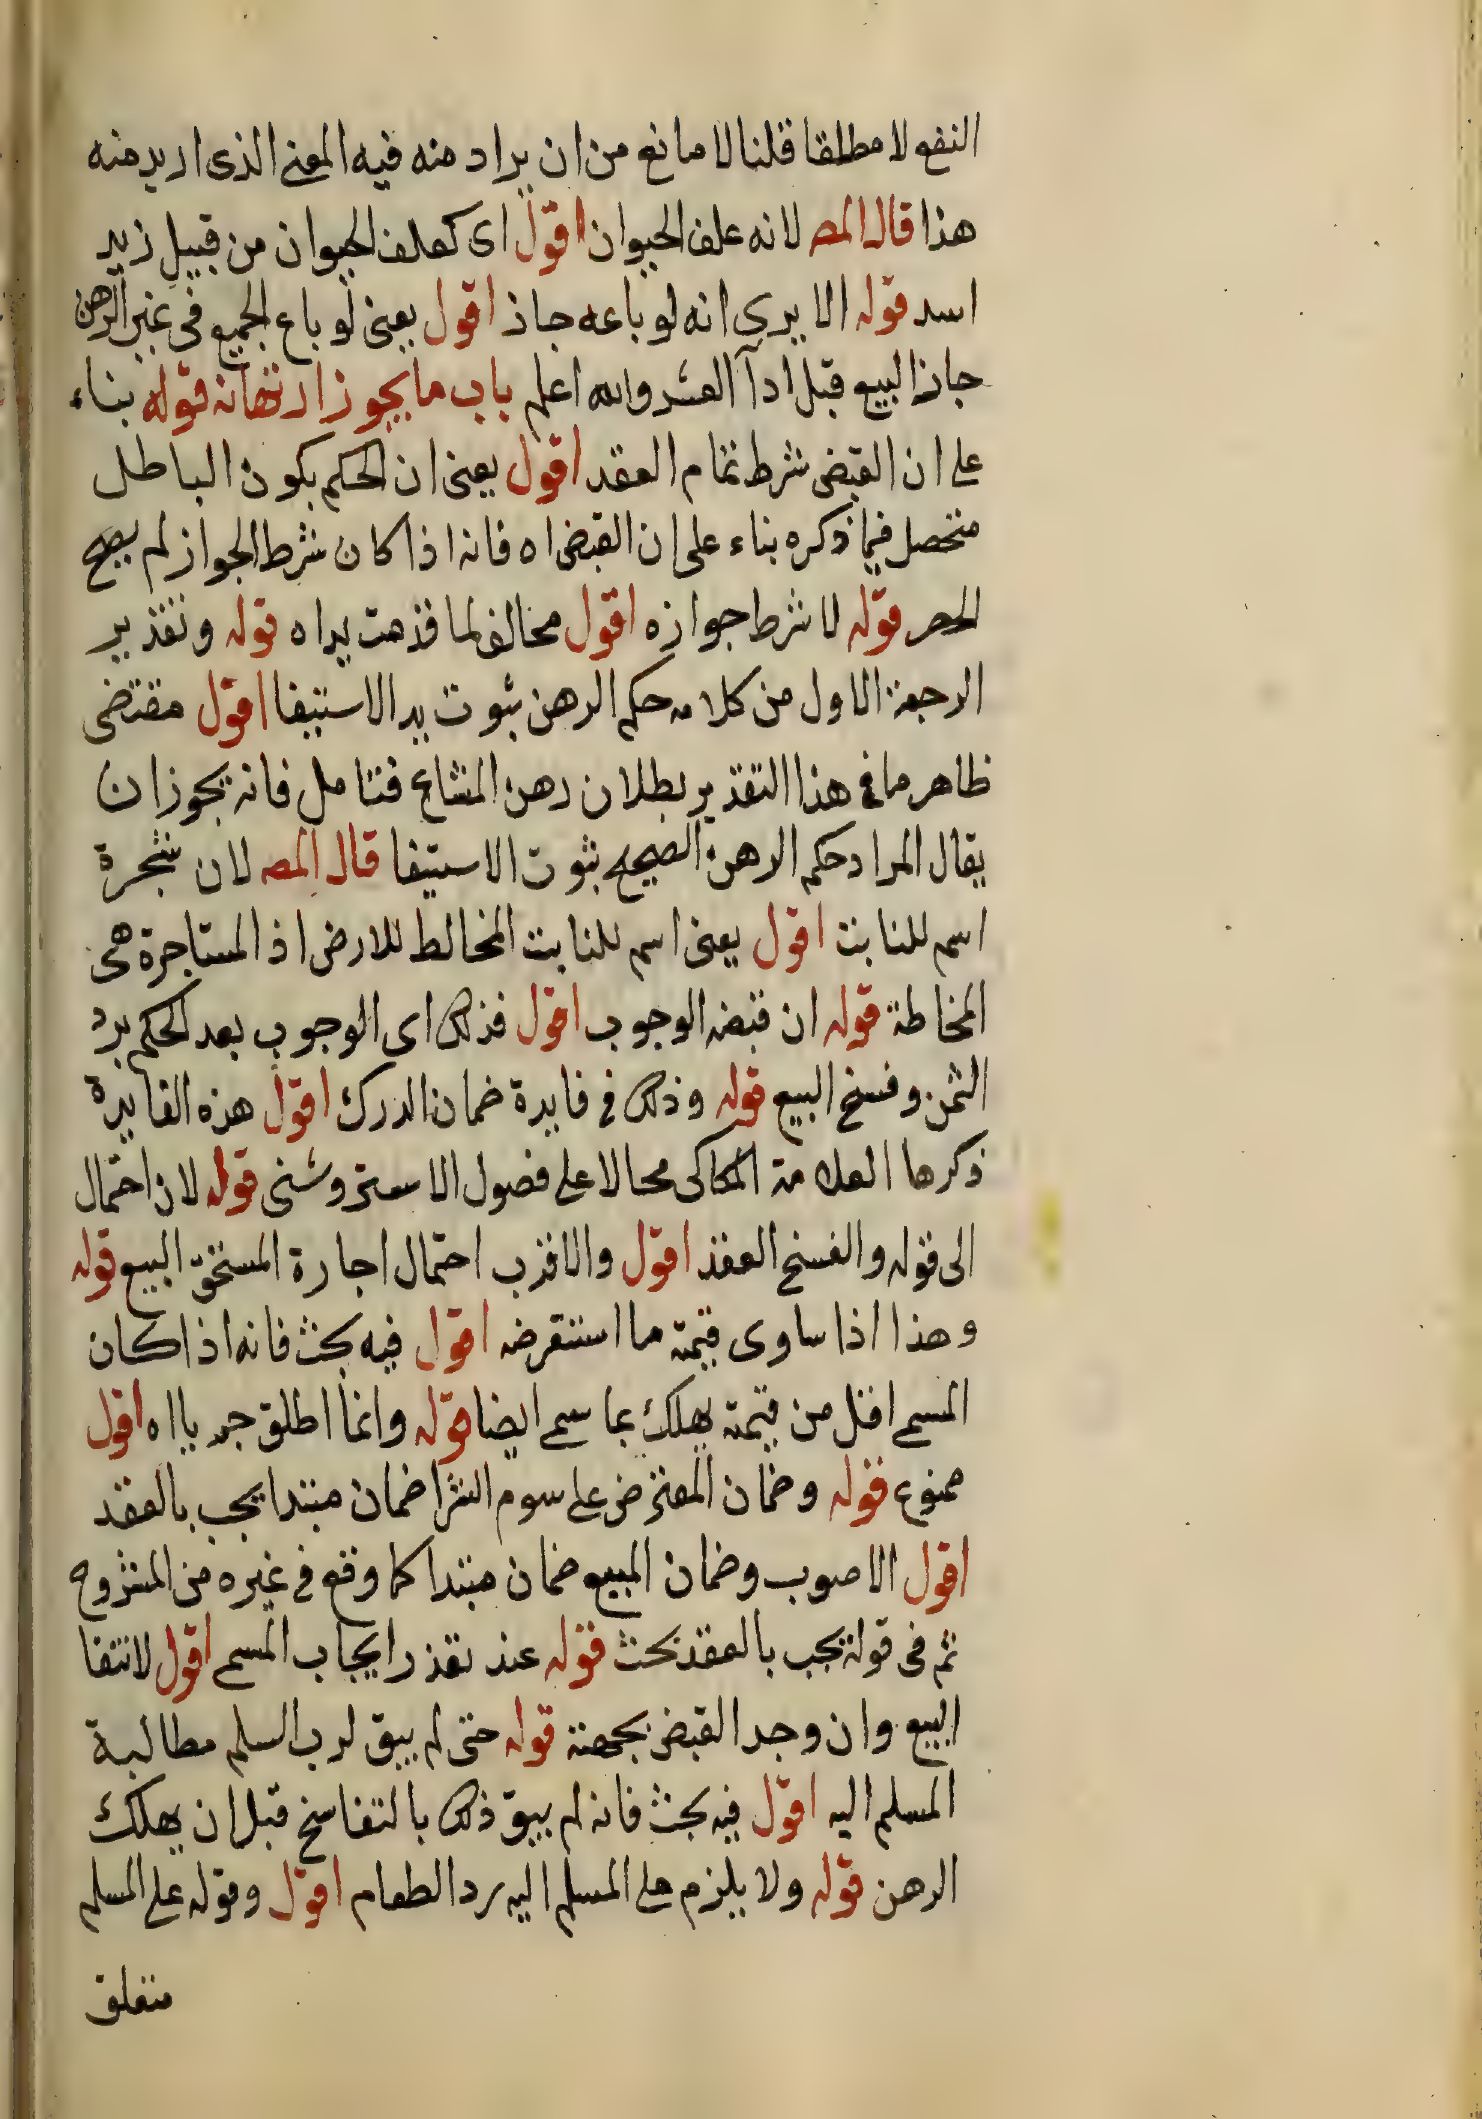 النفع لا مطلقا قلنا لا مانع من ان يراد منه فيه المعنى الذى اريد منه
هذا قال المص لانه علف الحيوان اقول اى كعلف الحيوان من قبيل زيد
اسد قوله الا يرى انه لو باعه جاز اقول يعنى لو باع الجميع فى غير الرهن
جاز البيع قبل ادآ العشر والله اعلم باب ما يجوز ارتهانه قوله بناء
على ان القبض شرط تمام العقد اقول يعنى ان الحكم بكون الباطل
منحصل فيما ذكره بناء على ان القبض اه فانه اذا كان شرط الجواز لم يصح
الحصر قوله لا شرط جوازه اقول مخالف لما قدمت يداه قوله وتقدير
الرجعة الاول من كلامه حكم الرهن ثبوت يد الاستيفا اقول مقتضى
ظاهر ما فى هذا التقدير بطلان رهن المشاع فتامل فانه يجوز ان
يقال المراد حكم الرهن الصحيح ثبوت الاستيفا قال المص لان شجرة
اسم للنابت اقول يعنى اسم للنابت المخالط للارض اذ المستاجرة هى
المخاطة قوله ان قبضه الوجوب اقول فذلك اى الوجوب بعد الحكم برد
الثمن وفسخ البيع قوله وذلك فى فايدة ضمان الدرك اقول هذه الفايدة
ذكرها العلامة الكاكى محالا على فصول الاستروشنى قوله لان احتمال
الى قوله والفسخ العقد اقول والاقرب احتمال اجارة المستحق البيع قوله
وهذا اذا ساوى قيمة ما استقرضه اقول فيه بحث فانه اذا كان
المسمى اقل من قيمته يهلك بما سمى ايضا قوله وانما اطلق جريا اه اقول
ممنوع قوله وضمان المقترض على سوم الشرا ضمان مبتدا يجب بالعقد
اقول الاصوب وضمان المبيع ضمان مبتدا كما وقع فى غيره من الشروح
ثم فى قوله يجب بالعقد بحث قوله عند تعذر ايجاب المسمى اقول لانتفا
البيع وان وجد القبض بجهته قوله حتى لم يبق لرب السلم مطالبة
المسلم اليه اقول فيه بحث فانه لم يبق ذلك بالتفاسخ قبل ان يهلك
الرهن قوله ولا يلزم على المسلم اليه رد الطعام اقول وقوله على المسلم
متعلق